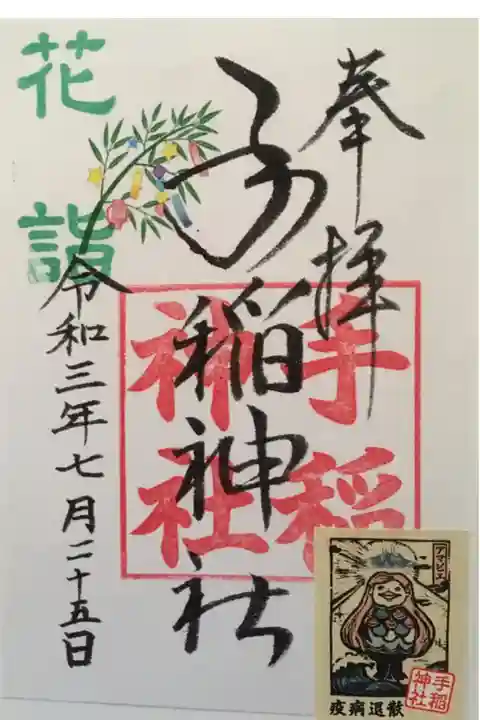 奉拝
手稲神社
手稲
神社
花詣
令和三年七月二十五日
アマビエ
疫病退散
手稲
神社